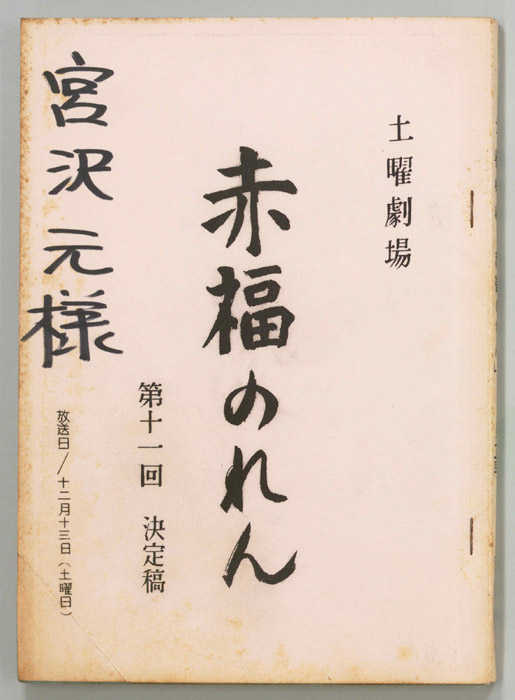 土曜劇場
赤福のれん
第十一回　決定稿
放送日／十二月十三日（土曜日）
宮沢元様